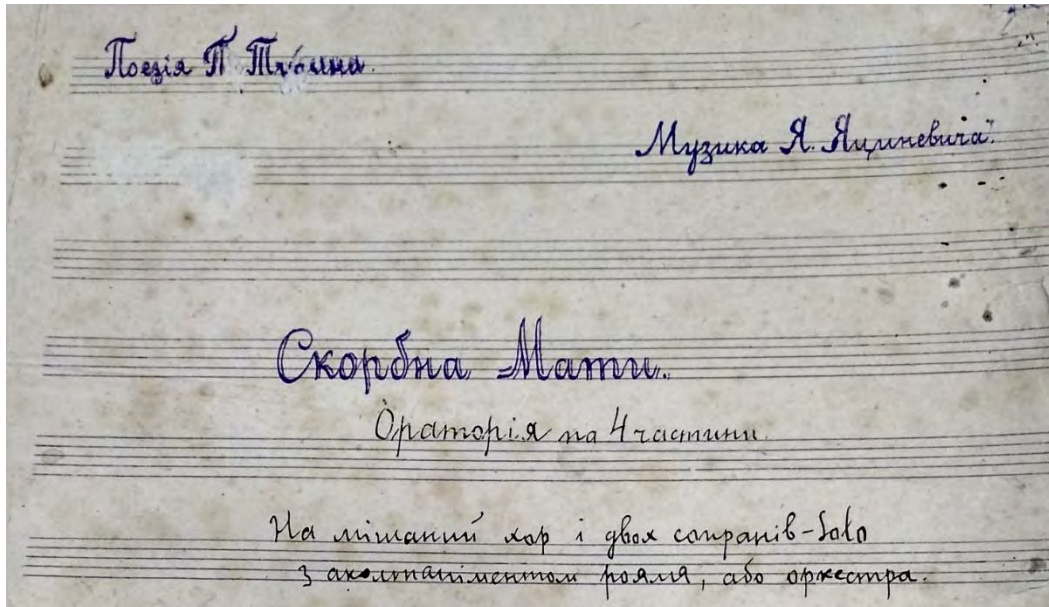 Поезія П Тичина.
Музика Я. Яциневича.
Скорбна Мати.
Ораторія на 4 частини.
На мішаний хор і двох сопранів-Solo
з акомпаніментом рояля, або оркестра.